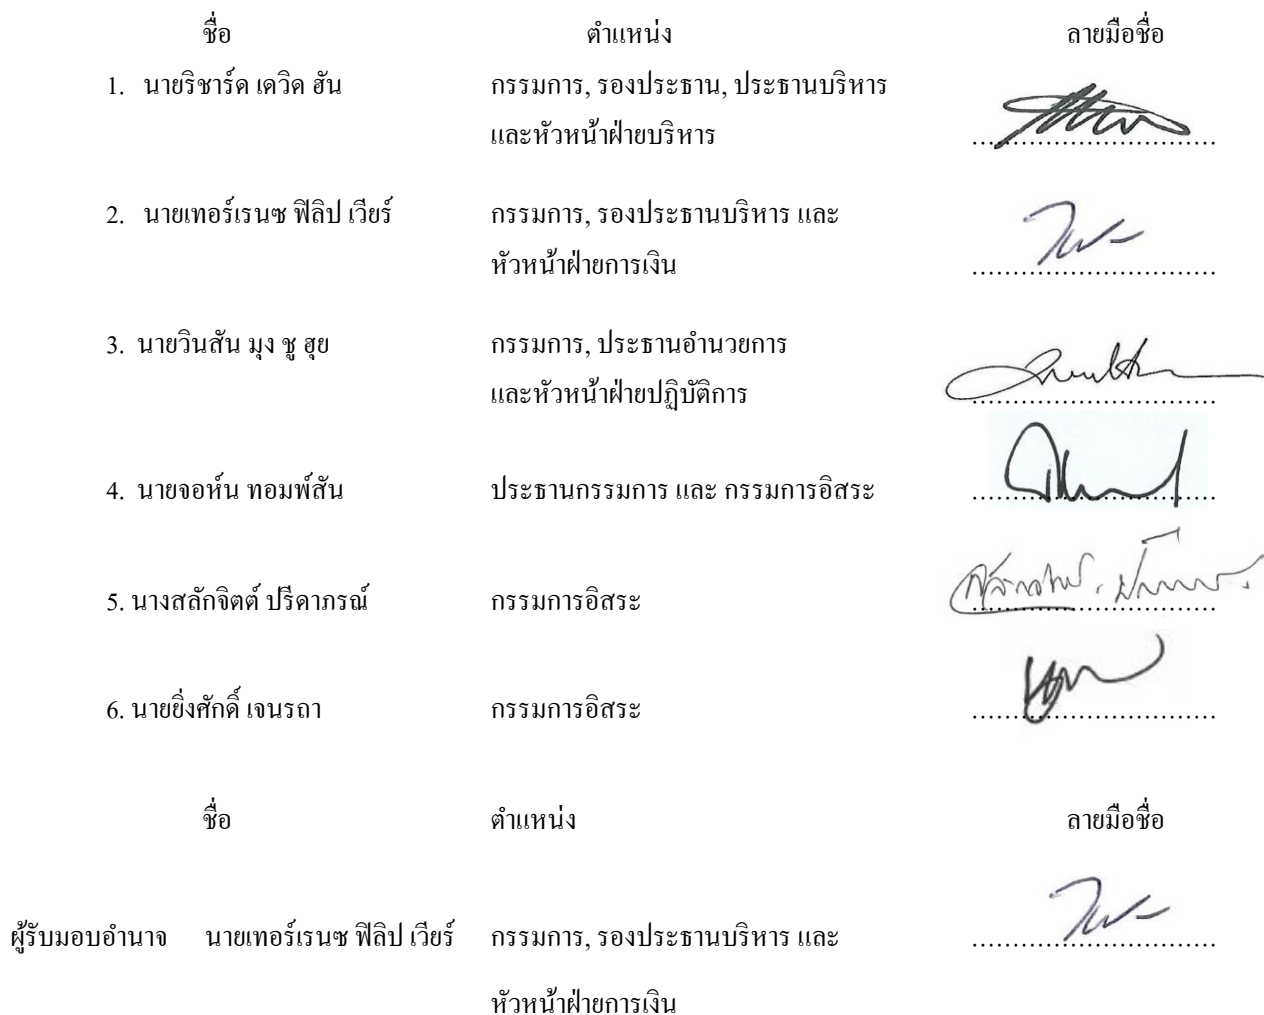 ชื่อ ตำแหน่ง ลายมือชื่อ
1. นายริชาร์ด เดวิด ฮัน กรรมการ, รองประธาน, ประธานบริหาร
และหัวหน้าฝ่ายบริหาร
2. นายเทอร์เรนซ ฟิลิป เวียร์ กรรมการ, รองประธานบริหาร และ
หัวหน้าฝ่ายการเงิน
3. นายวินสัน มุง ชู ฮุย กรรมการ, ประธานอำนวยการ
และหัวหน้าฝ่ายปฏิบัติการ
4. นายจอห์น ทอมพ์สัน ประธานกรรมการ และ กรรมการอิสระ
5. นางสลักจิตต์ ปรีดาภรณ์ กรรมการอิสระ
6. นายยิ่งศักดิ์ เจนรถา กรรมการอิสระ
ชื่อ ตำแหน่ง ลายมือชื่อ
ผู้รับมอบอำนาจ นายเทอร์เรนซ ฟิลิป เวียร์ กรรมการ, รองประธานบริหาร และ
หัวหน้าฝ่ายการเงิน